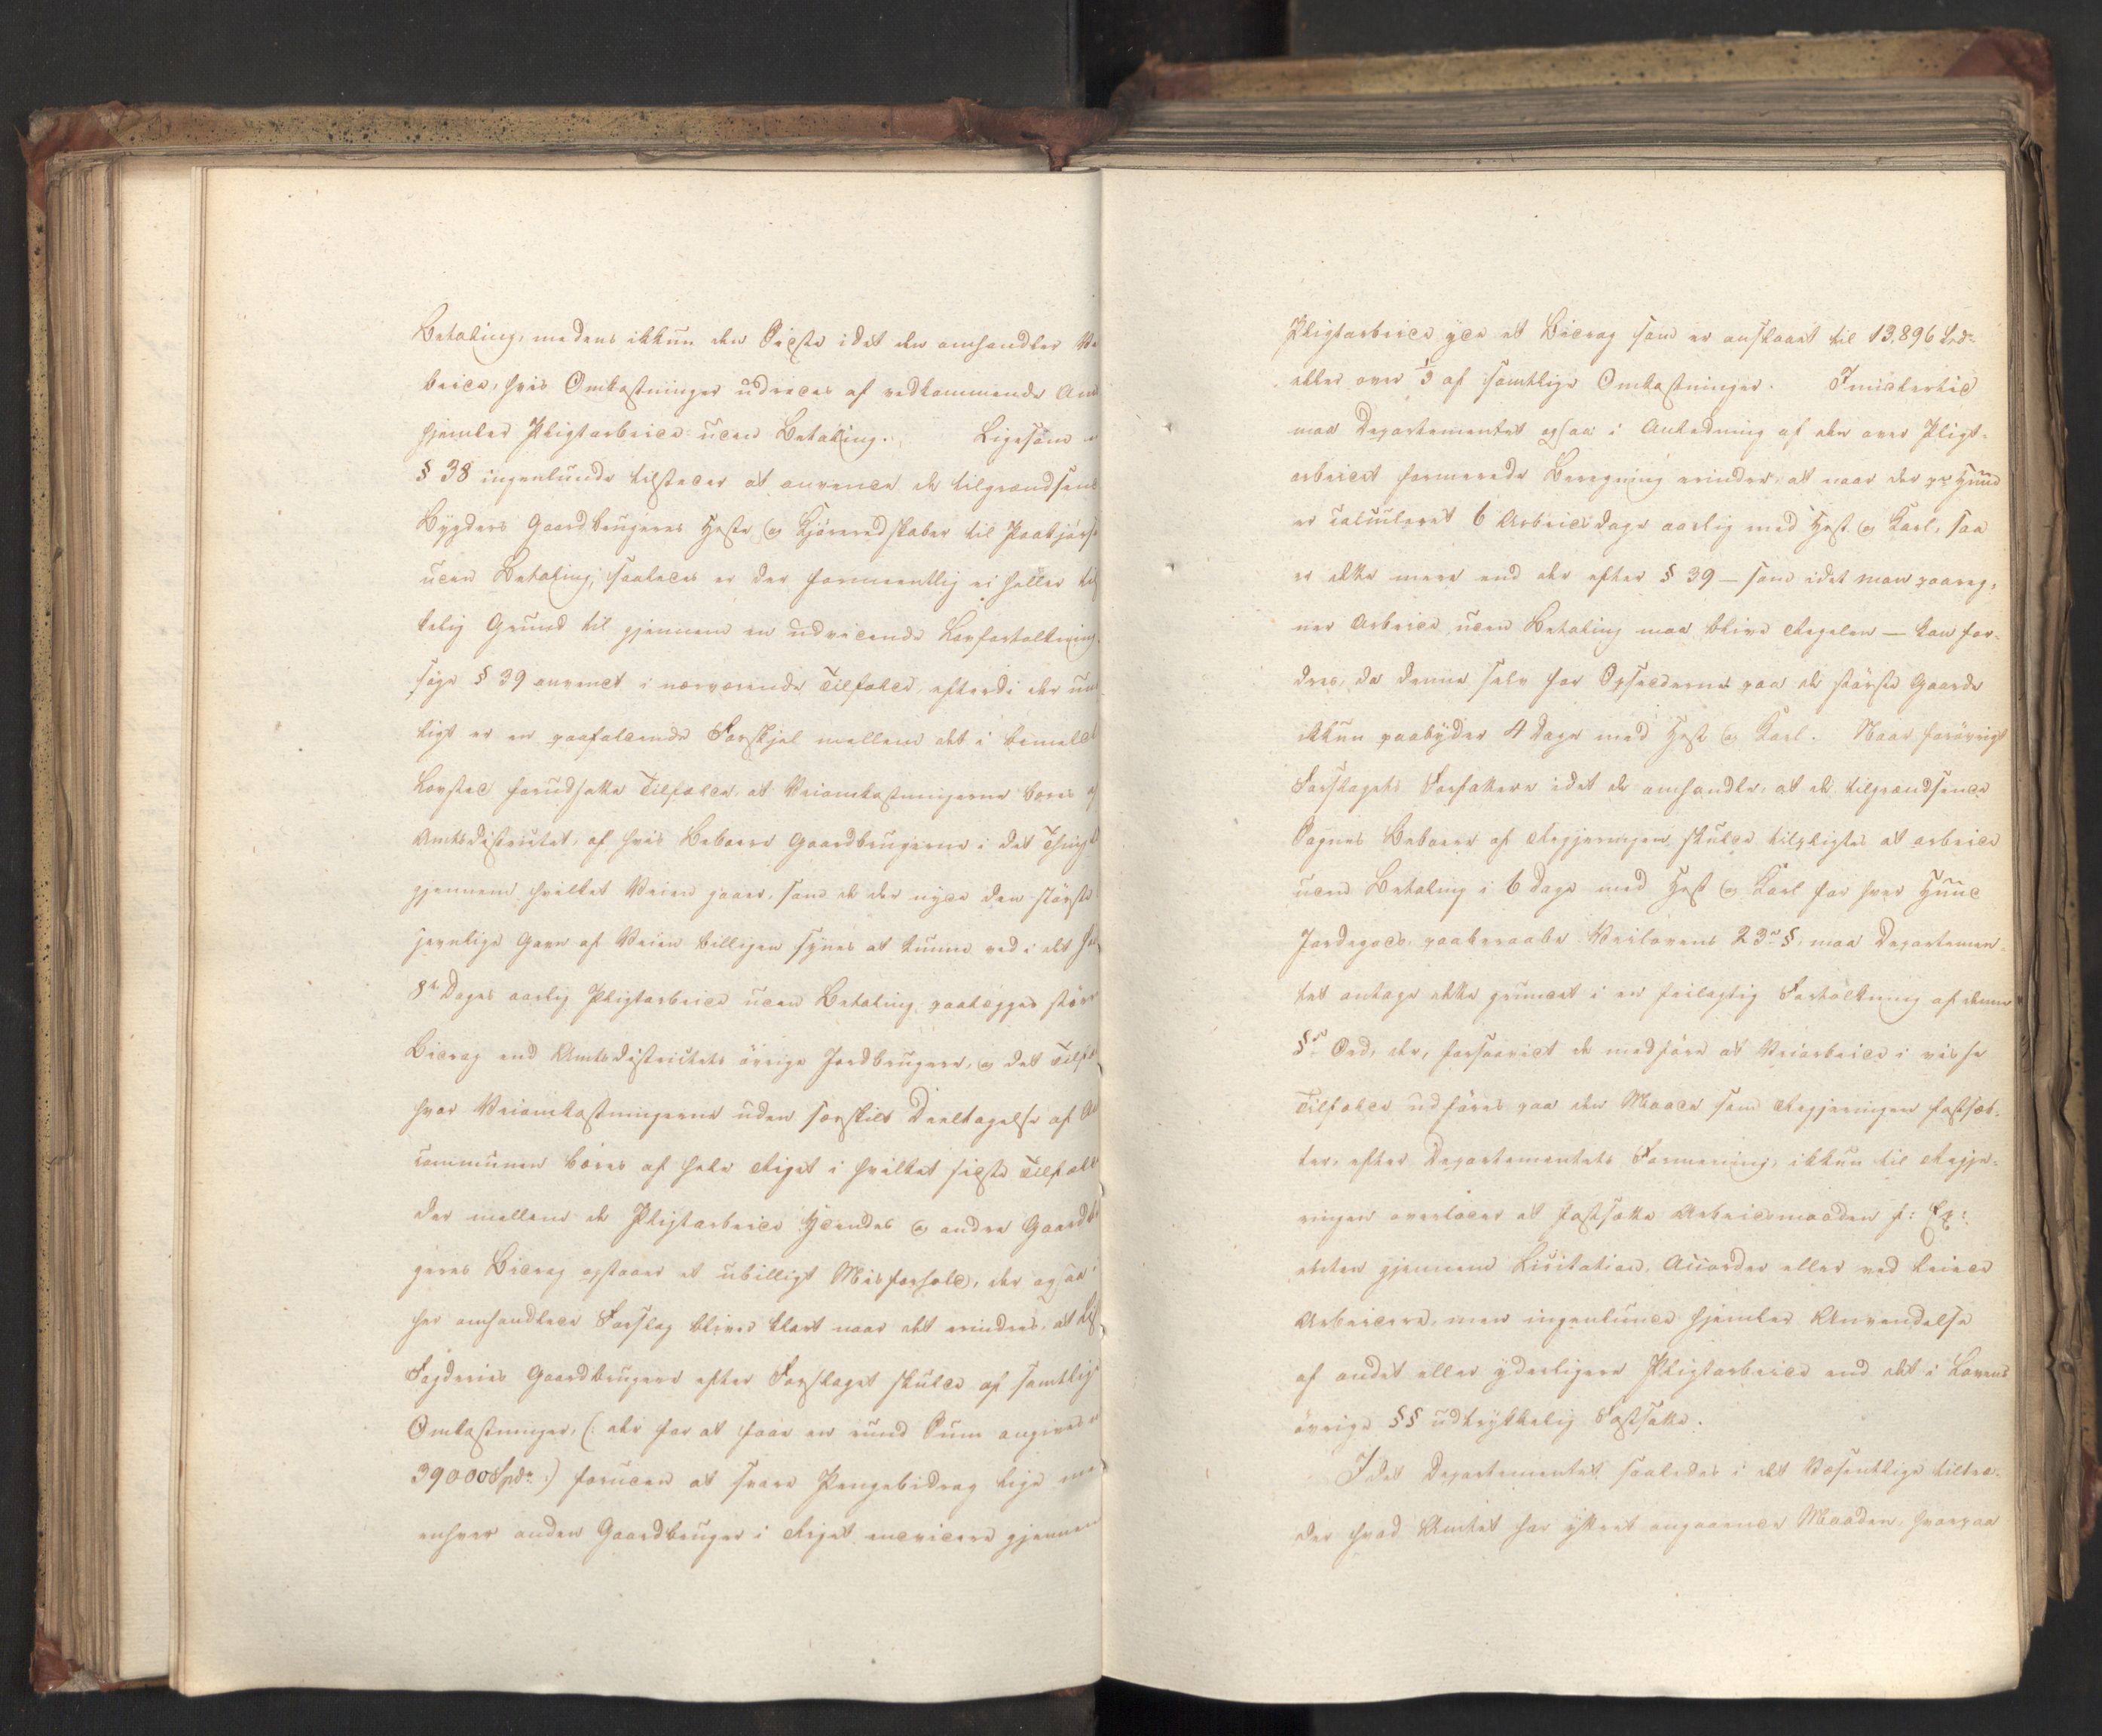 Betaling, medens ikkun den Sidste idet den omhandler Ve
beide, hvis Omkostninger udredes af vedkommende Am
hjemler Pligtarbeide uden Betaling. Ligesom
§ 38 ingenlunde tilsteder at anvende de tilgrændsende
Bygders Gaardbrugeres Heste og Kjøreredskaber til Paakjørs
uden Betaling; saaledes er der formeentlig ei heller til
kelig Grund til gjennem en udvidende Lovfortolkning
søge § 39 anvendt i nærværende Tilfælde, efterdi der
ligt er en paafaldende Forskjel mellem det i bemeldt
Lovsted forudsatte Tilfælde, at Veiomkostningerne bæres af
Amtsdistrictet, af hvis Beboere Gaardbrugerne i det Thingl
gjennem hvilket Veien gaaer, som de der nyde den største
jevnlige Gavn af Veien billigen synes at kunne ved i det
8te Dages aarlig Pligtarbeide uden Betaling paalægges større
Bidrag end Amtsdistrictets øvrige Jordbrugere, og det Tilfæ
hvor Veiomkostningerne uden særskilt Deeltagelse af
communen bæres af hele Riget i hvilket sidste Tilfælde
der mellem de Pligtarbeide Ydendes og andre Gaardbr
geres Bidrag opstaaer et ubilligt Misforhold, der ogsaa i
her omhandlede Forslag bliver klart naar det erindres, at
Fogderies Gaardbrugere efter Forslaget skulde af samtlige
Omkostninger, (: der for at faae en rund Sum angives
39000 Spdr :) foruden at svare Pengebidrag lige
enhver anden Gaardbruger i Riget endvidere gjennem
Pligtarbeide yde et Bidrag som er anslaaet til 13,896 Spdr
eller over 1/3 af samtlige Omkostninger. Imidlertid
maa Departementet ogsaa i Anledning af den over Pligt-
arbeidet formerede Beregning erindre, at naar der pr Huud
er calculeret 6 Arbeidsdage aarlig med Hest og Karl, saa
er dette mere end der efter § 39 – som idet man paareg-
ner Arbeide uden Betaling maa blive Regelen – kan for-
dres, da denne selv for Opsidderne paa de største Gaarde
ikkun paabyder 4 Dage med Hest og Karl. Naar forøvrigt
Forslagets Forfattere idet de omhandle, at de tilgrændsende
Sognes Beboere af Regjeringen skulde tilpligtes at arbeide
uden Betaling i 6 Dage med Hest og Karl for hver Huud
Jordegods, paaberaabe Veilovens 23de §, maa Departemen-
tet antage dette grundet i en feilagtig Fortolkning af denne
§s Ord, der, forsaavidt de medføre at Veiarbeide i visse
Tilfælde udføres paa den Maade som Regjeringen fastsæt-
ter, efter Departementets Formening, ikkun til Regje-
ringen overlader at fastsætte Arbeidsmaaden f: Ex:
enten gjennem Licitation, Accorder eller ved leiede
Arbeidere, men ingenlunde hjemler Anvendelse
af andet eller yderligere Pligtarbeide end det i Lovens
øvrige §§ udtrykkelig Fastsatte.
Idet Departementet saaledes i det Væsentlige tiltræ-
der hvad Amtet har yttret angaaende Maaden, hvorpaa